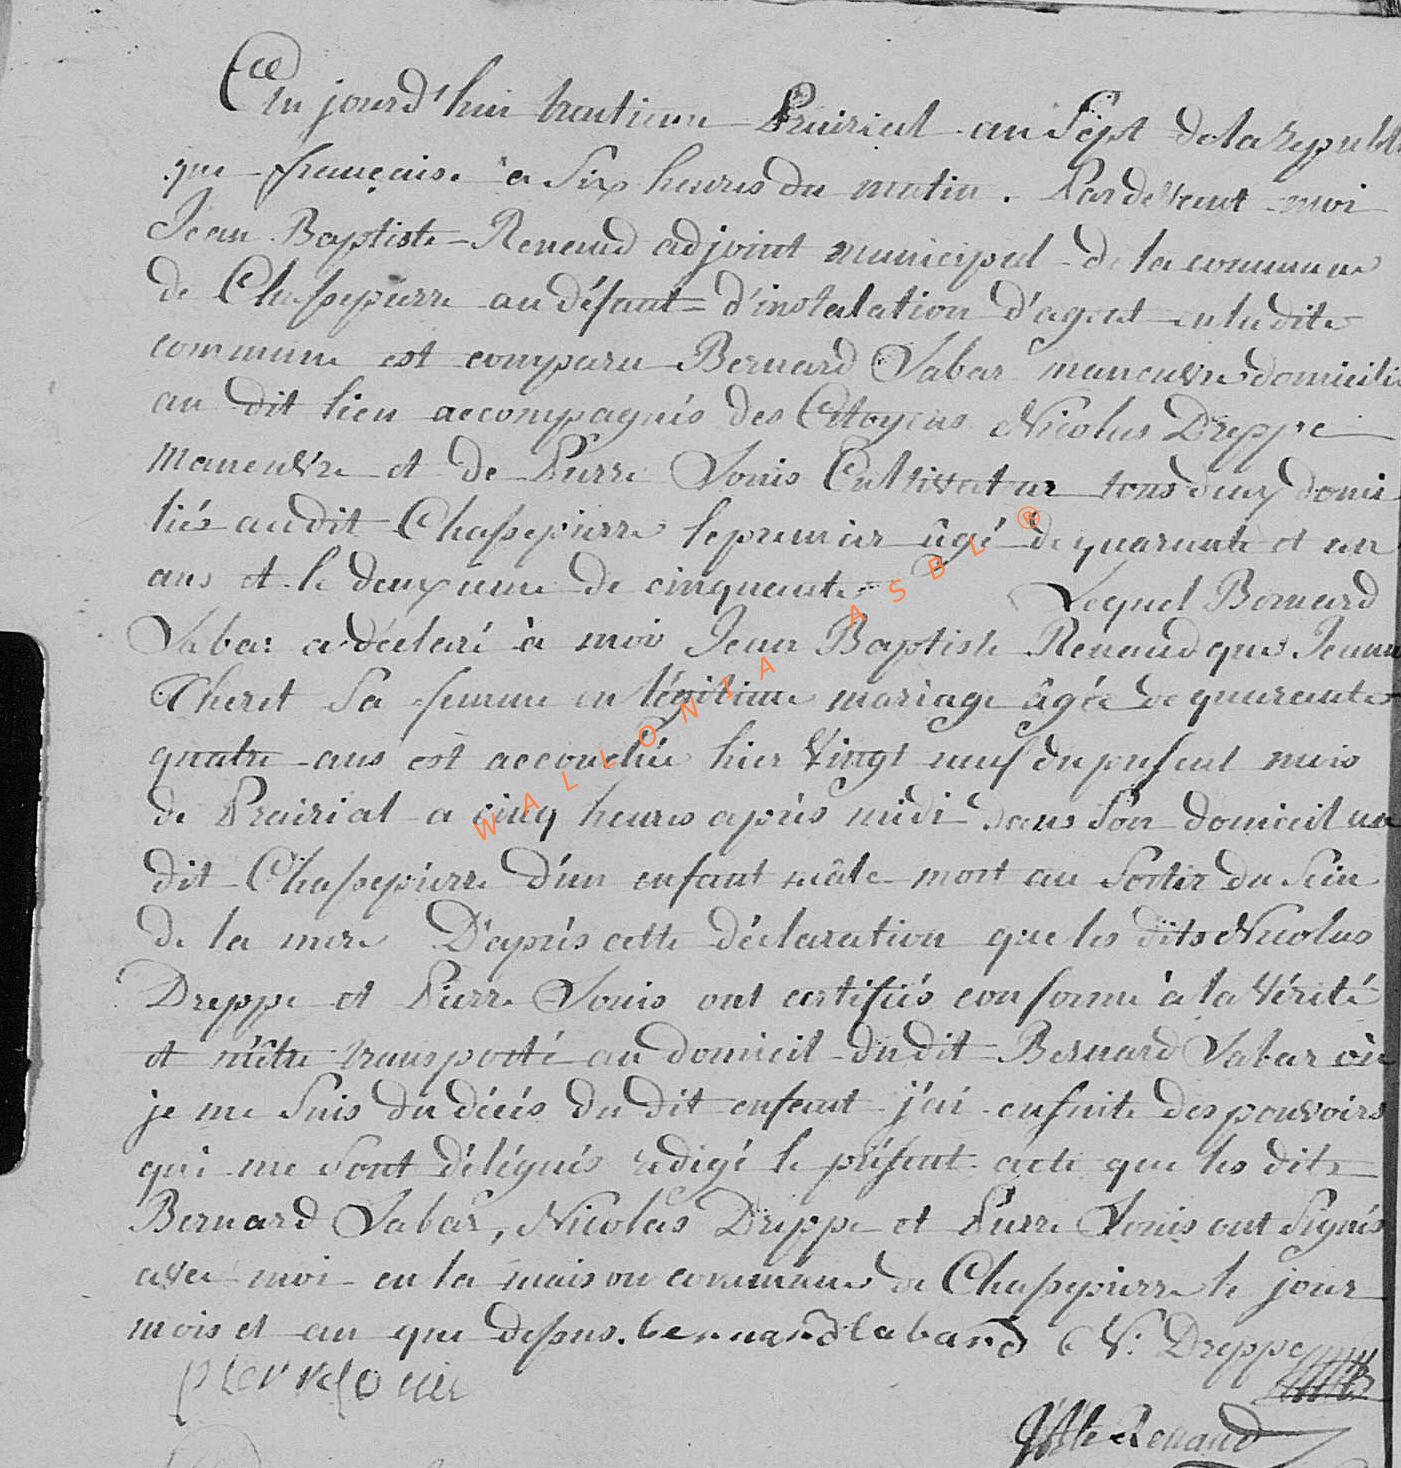 Ce
Cejourd'hui trentieme Prairial an Sept de la republi
que française a Six heures du matin. Pardevant moi
Jean Baptiste Renaud adjoint municipal de la commune
de Chassepierre au défaut d'instalation d'agent en la dite
commune est comparu Bernard Labar maneuvre domicilié
au dit lieu accompagnés des Citoyens Nicolas Dreppe
Maneuvre et de Pierre Louis Cultivateur tous deux domici
liés audit Chassepierre le premier âgé de quarante et un
ans et le deuxieme de cinquante Lequel Bernard
Labar a déclaré à moi Jean Baptiste Renaud que Jeanne
Theret Sa femme en légitime mariage âgée de quarente
quatre ans est accouchée hier Vingt neuf du present mois
de Prairial a cinq heures après midi dans Son domicil au
dit Chassepierre d'un enfant mâle mort au Sortir du Sein
de la mere D'après cette déclaration que les dits Nicolas
Dreppe et Pierre Louis ont certifiés conforme à la Vérité
et m'être transporté au domicil du dit Bernard Labar où
je me Suis du décès du dit enfant j'ai ensuite des pouvoirs
qui me Sont délégués redigé le présent acte que les dits
Bernard Labar, Nicolas Dreppe et Pierre Louis ont Signés
avec moi en la maison commune de Chassepierre le jour
mois et an que dessus. bernard labard N: Dreppe
pierre louis
JBte Renaud
WALLONIA ASBL ®